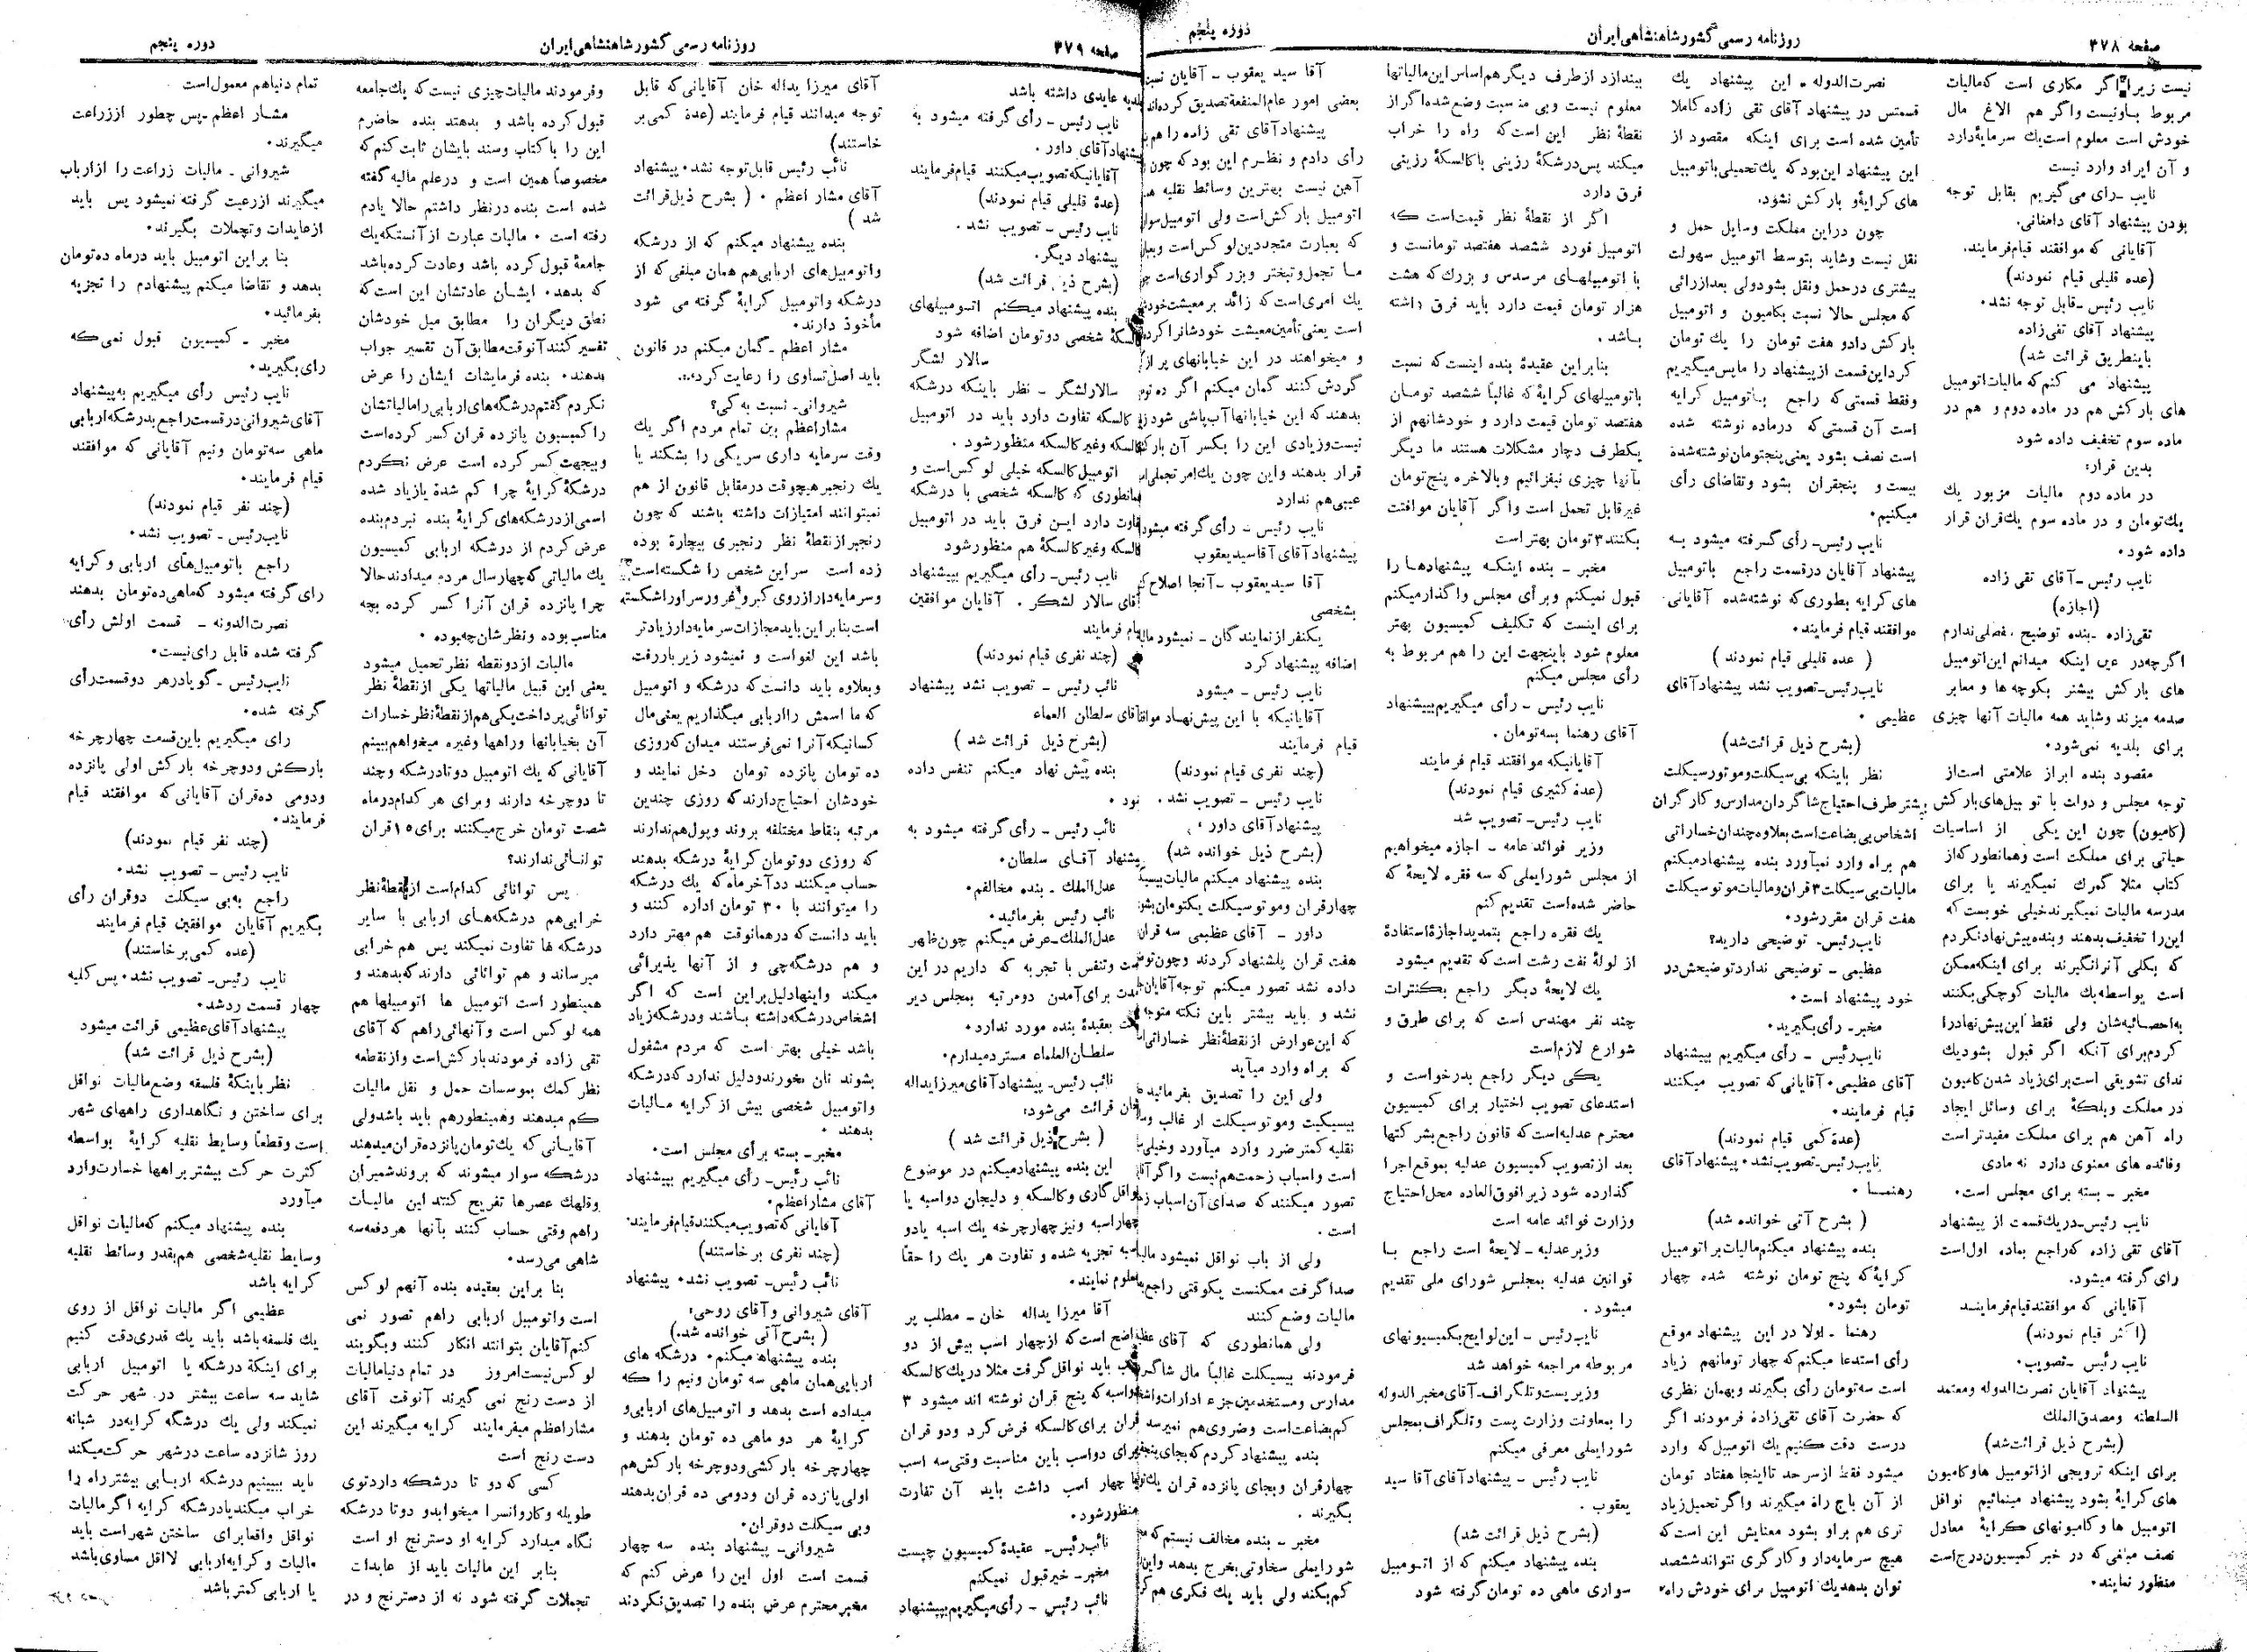 صفحه ۳۷۸
روزنامه رسمی کشور شاهنشاهی ایران
دوره پنجم
نیست زیرا اگر مکاری است که مالیات
مربوط باو نیست و اگر هم الاغ مال
خودش است معلوم است یك سرمایهٔ دارد
و آن ایراد وارد نیست
نایب ـ رای می گیریم بقابل توجه
بودن پیشنهاد آقای دامغانی.
آقایانی که موافقند قیام فرمایند.
(عده قلیلی قیام نمودند)
نایب رئیس ـ قابل توجه نشد.
پیشنهاد آقای تقی زاده
باینطریق قرائت شد)
پیشنهاد می کنم که مالیات اتومبیل
های بارکش هم در ماده دوم و هم در
ماده سوم تخفیف داده شود
بدین قرار:
در ماده دوم مالیات مزبور یك
یك تومان و در ماده سوم یك قران قرار
داده شود.
نایب رئیس ـ آقای تقی زاده
(اجازه)
تقی زاده ـ بنده توضیح مفصلی ندارم
اگر چه در عین اینکه میدانم این اتومبیل
های بارکش بیشتر بکوچه ها و معابر
صدمه میزند و شاید همه مالیات آنها چیزی
برای بلدیه نمی شود.
مقصود بنده ابراز علامتی است از
توجه مجلس و دولت با تو بیل های بارکش
(کامیون) چون این یکی از اساسیات
حیاتی برای مملکت است و همانطور که از
کتاب مثلا گمرك نمیگیرند یا برای
مدرسه مالیات نمیگیرند خیلی خوبست که
این را تخفیف بدهند و بنده پیش نهاد نکردم
که بکلی آنرا نگیرند برای اینکه ممکن
است بواسطه یك مالیات کوچکی بکنند
به احصائیه شان ولی فقط این پیش نهاد را
کردم برای آنکه اگر قبول بشود یك
ندای تشویقی است برای زیاد شدن کامیون
در مملکت و بلکهٔ برای وسائل ایجاد
راه آهن هم برای مملکت مفیدتر است
و فائده های معنوی دارد نه مادی
مخبر ـ بسته برای مجلس است.
نایب رئیس ـ در یك قسمت از پیشنهاد
آقای تقی زاده که راجع بماده اول است
رای گرفته میشود.
آقایانی که موافقند قیام فرمایند
(اکثر قیام نمودند)
نایب رئیس ـ تصویب.
پیشنهاد آقایان نصرت الدوله و معتمد
السلطنه و مصدق الملك
(بشرح ذیل قرائت شد)
برای اینکه ترویجی از اتومبیل ها و کامیون
های کرایهٔ بشود پیشنهاد مینمائیم نوافل
اتومبیل ها و کامیونهای کرایهٔ معادل
نصف مبلغی که در خبر کمیسیون درج است
منظور نمایند.
نصرت الدوله ـ این پیشنهاد یك
قسمتش در پیشنهاد آقای تقی زاده کاملا
تأمین شده است برای اینکه مقصود از
این پیشنهاد این بود که یك تحمیلی باتومبیل
های کرایهٔ و بارکش نشود.
چون در این مملکت وسایل حمل و
نقل نیست و شاید بتوسط اتومبیل سهولت
بیشتری در حمل و نقل بشود ولی بعد از رائی
که مجلس حالا نسبت بکامیون و اتومبیل
بارکش داد و هفت تومان را یك تومان
کرد این قسمت از پیشنهاد را مایس میگیریم
و فقط قسمتی که راجع باتومبیل کرایه
است آن قسمتی که در ماده نوشته شده
است نصف بشود یعنی پنج تومان نوشته شدهٔ
بیست و پنجقران بشود و تقاضای رأی
میکنیم.
نایب رئیس ـ رأی گرفته میشود به
پیشنهاد آقایان در قسمت راجع باتومبیل
های کرایه بطوری که نوشته شده آقایانی
موافقند قیام فرمایند.
( عده قلیلی قیام نمودند )
نایب رئیس ـ تصویب نشد پیشنهاد آقای
عظیمی .
(بشرح ذیل قرائت شد)
نظر باینکه بی سیکلت و موتور سیکلت
بیشتر طرف احتیاج شاگردان مدارس و کارگران
اشخاص بی بضاعت است بعلاوه چندان خساراتی
هم براه وارد نمیآورد بنده پیشنهاد میکنم
مالیات بی سیکلت ۳ قران و مالیات موتوسیکلت
هفت قران مقرر شود.
نایب رئیس ـ توضیحی دارید؟
عظیمی ـ توضیحی ندارد توضیحش در
خود پیشنهاد است.
مخبر ـ رأی بگیرید.
نایب رئیس ـ رأی میگیریم بپیشنهاد
آقای عظیمی. آقایانی که تصویب میکنند
قیام فرمایند.
(عدهٔ کمی قیام نمودند)
نایب رئیس ـ تصویب نشد. پیشنهاد آقای
رهنما .
( بشرح آتی خوانده شد)
بنده پیشنهاد میکنم مالیات بر اتومبیل
کرایهٔ که پنج تومان نوشته شده چهار
تومان بشود.
رهنما ـ اولا در این پیشنهاد موقع
رأی استدعا میکنم که چهار تومانهم زیاد
است سه تومان رأی بگیرند و بهمان نظری
که حضرت آقای تقی زادهٔ فرمودند اگر
درست دقت کنیم یك اتومبیل که وارد
میشود فقط از سرحد تا اینجا هفتاد تومان
از آن باج راه میگیرند و اگر تحمیل زیاد
تری هم براو بشود معنایش این است که
هیچ سرمایه دار و کارگری نتواند ششصد
تومان بدهد یك اتومبیل برای خودش راه
بیندازد از طرف دیگر هم اساس این مالیاتها
معلوم نیست و بی مناسبت وضع شده اگر از
نقطهٔ نظر این است که راه را خراب
میکند پس درشکهٔ رزینی با کالسکهٔ رزینی
فرق دارد
اگر از نقطهٔ نظر قیمت است که
اتومبیل فورد ششصد هفتصد تومانست و
با اتومبیلهای مرسدس و بزرك که هشت
هزار تومان قیمت دارد باید فرق داشته
باشد .
بنابر این عقیدهٔ بنده اینست که نسبت
باتومبیلهای کرایهٔ که غالباً ششصد تومان
هفتصد تومان قیمت دارد و خودشانهم از
یکطرف دچار مشکلات هستند ما دیگر
بآنها چیزی نیفزائیم و بالاخره پنج تومان
غیر قابل تحمل است و اگر آقایان موافقت
بکنند ۳ تومان بهتر است
مخبر ـ بنده اینکه پیشنهادها را
قبول نمیکنم و برأی مجلس واگذار میکنم
برای اینست که تکلیف کمیسیون بهتر
معلوم شود باینجهت این را هم مربوط به
رأی مجلس میکنم
نایب رئیس ـ رأی میگیریم بپیشنهاد
آقای رهنما بسه تومان .
آقایانیکه موافقند قیام فرمایند
(عدهٔ کثیری قیام نمودند)
نایب رئیس ـ تصویب شد
وزیر فوائد عامه ـ اجازه میخواهیم
از مجلس شورایملی که سه فقره لایحهٔ که
حاضر شده است تقدیم کنم
یك فقره راجع بتمدید اجازهٔ استفادهٔ
از لولهٔ نفت رشت است که تقدیم میشود
یك لایحهٔ دیگر راجع بکنترات
چند نفر مهندس است که برای طرق و
شوارع لازم است
یکی دیگر راجع بدرخواست و
استدعای تصویب اختیار برای کمیسیون
محترم عدلیه است که قانون راجع بشرکتها
بعد از تصویب کمیسیون عدلیه بموقع اجرا
گذارده شود زیرا فوق العاده محل احتیاج
وزارت فوائد عامه است
وزیر عدلیه ـ لایحهٔ است راجع با
قوانین عدلیه بمجلس شورای ملی تقدیم
میشود .
نایب رئیس ـ این لوایح بکمیسیونهای
مربوطه مراجعه خواهد شد
وزیر پست و تلگراف ـ آقای مخبرالدوله
را بمعاونت وزارت پست و تلگراف بمجلس
شورایملی معرفی میکنم
نایب رئیس ـ پیشنهاد آقای آقا سید
یعقوب .
(بشرح ذیل قرائت شد)
بنده پیشنهاد میکنم که از اتومبیل
سواری ماهی ده تومان گرفته شود
آقا سید یعقوب ـ آقایان
بعضی امور عام المنفعهٔ تصدیق کرده اند
پیشنهاد آقای تقی زاده را هم
رأی دادم و نظرم این بود که چون
آهن نیست بهترین وسائط نقلیه
اتومبیل بارکش است ولی اتومبیل
که بعبارت متجددین لوکس است
ما تجمل و تبختر و بزرگواری است
یك امری است که زائد بر معیشت
است یعنی تأمین معیشت خودشانرا
و میخواهند در این خیابانهای پر از
گردش کنند گمان میکنم اگر ده
بدهند که این خیابانها آب پاشی شود
نیست و زیادی این را بکسر آن
قرار بدهند و این چون یك امر
عیبی هم ندارد
نایب رئیس ـ رأی گرفته میشود
پیشنهاد آقای آقا سید یعقوب
آقا سید یعقوب ـ آنجا اصلاح
بشخصی
یکنفر از نمایندگان ـ نمیشود
اضافه پیشنهاد کرد
نایب رئیس ـ میشود
آقایانیکه با این پیش نهاد
قیام فرمایند
(چند نفری قیام نمودند)
نایب رئیس ـ تصویب نشد .
پیشنهاد آقای داور
(بشرح ذیل خوانده شد)
بنده پیشنهاد میکنم مالیات
چهار قران و موتوسیکلت یکتومان
داور ـ آقای عظیمی سه قران
هفت قران پیشنهاد کردند و چون
داده نشد تصور میکنم توجه آقایان
نشد و باید بیشتر باین نکته
که این عوارض از نقطهٔ نظر
که براه وارد میآید
ولی این را تصدیق بفرمائید
بیسیکیت و موتوسیکلت از غالب
نقلیه کمتر ضرر وارد میآورد و خیلی
است و اسباب زحمت هم نیست و اگر
تصور میکنند که صدای آن اسباب
است .
ولی از باب نواقل نمیشود
صدا گرفت ممکنست یکوقتی راجع
مالیات وضع کنند
ولی همانطوری که آقای
فرمودند بیسیکلت غالباً مال
مدارس و مستخدمین جزء ادارات
کم بضاعت است و ضروی هم نمیرسد
بنده پیشنهاد کردم که بجای
چهار قران و بجای پانزده قران
بگیرند .
مخبر ـ بنده مخالف نیستم که
شورایملی سخاوتی بخرج بدهد
کم بکند ولی باید یك فکری هم
صفحه ۳۷۹
روزنامه رسمی کشور شاهنشاهی ایران
دوره پنجم
بلدیه عایدی داشته باشد
نایب رئیس ـ رأی گرفته میشود به
پیشنهاد آقای داور .
آقایانیکه تصویب میکنند قیام فرمایند
(عدهٔ قلیلی قیام نمودند)
نایب رئیس ـ تصویب نشد .
پیشنهاد دیگر.
(بشرح ذیل قرائت شد)
بنده پیشنهاد میکنم اتومبیلهای
کالسکهٔ شخصی دو تومان اضافه شود
سالار لشگر
سالار لشگر ـ نظر باینکه درشکه
و کالسکه تفاوت دارد باید در اتومبیل
کالسکه و غیر کالسکه منظور شود .
اتومبیل کالسکه خیلی لوکس است و
همانطوری که کالسکه شخصی با درشکه
تفاوت دارد این فرق باید در اتومبیل
کالسکه و غیر کالسکهٔ هم منظور شود
نایب رئیس ـ رأی میگیریم بپیشنهاد
آقای سالار لشگر . آقایان موافقین
قیام فرمایند
(چند نفری قیام نمودند)
نائب رئیس ـ تصویب نشد پیشنهاد
آقای سلطان العلماء
(بشرح ذیل قرائت شد )
بنده پیش نهاد میکنم تنفس داده
شود .
نائب رئیس ـ رأی گرفته میشود به
پیشنهاد آقای سلطان.
عدل الملك ـ بنده مخالفم.
نائب رئیس بفرمائید.
عدل الملك ـ عرض میکنم چون ظهر
است و تنفس با تجربه که داریم در این
مدت برای آمدن دو مرتبه بمجلس دیر
است بعقیدهٔ بنده مورد ندارد.
سلطان العلماء مسترد میدارم.
نائب رئیس ـ پیشنهاد آقای میرزا یداله
خان قرائت می شود:
( بشرح ذیل قرائت شد )
این بنده پیشنهاد میکنم در موضوع
نواقل گاری و کالسکه و دلیجان دواسبه یا
چهار اسبه و نیز چهارچرخه یك اسبه یا دو
اسبه تجزیه شده و تفاوت هر یك را حقاً
معلوم نمایند.
آقا میرزا یداله خان ـ مطلب پر
واضح است که از چهار اسب بیش از دو
اسب باید نواقل گرفت مثلا در یك کالسکه
دواسبه که پنج قران نوشته اند میشود ۳
قران برای کالسکه فرض کرد و دو قران
برای دواسب باین مناسبت وقتی سه اسب
یا چهار اسب داشت باید آن تفاوت
منظور شود.
نائب رئیس ـ عقیدهٔ کمیسیون چیست
مخبر ـ خیر قبول نمیکنم
نائب رئیس ـ رأی میگیریم بپیشنهاد
آقای میرزا یداله خان آقایانی که قابل
توجه میدانند قیام فرمایند (عدهٔ کمی بر
خاستند)
نائب رئیس قابل توجه نشد. پیشنهاد
آقای مشار اعظم . ( بشرح ذیل قرائت
شد )
بنده پیشنهاد میکنم که از درشکه
و اتومبیل های اربابی هم همان مبلغی که از
درشکه و اتومبیل کرایهٔ گرفته می شود
مأخوذ دارند.
مشار اعظم ـ گمان میکنم در قانون
باید اصل تساوی را رعایت کرد...
شیروانی ـ نسبت به کی؟
مشار اعظم بین تمام مردم اگر یك
وقت سرمایه داری سر یکی را بشکند یا
یك رنجبر هیچوقت در مقابل قانون از هم
نمیتوانند امتیازات داشته باشند که چون
رنجبر از نقطهٔ نظر رنجبری بیچارهٔ بوده
زده است سر این شخص را شکسته است
و سرمایه دار از روی کبر و غرور سر او را شکسته
است بنا بر این باید مجازات سرمایه دار زیادتر
باشد این لغو است و نمیشود زیر بار رفت
و بعلاوه باید دانست که درشکه و اتومبیل
که ما اسمش را اربابی میگذاریم یعنی مال
کسانیکه آنرا نمی فرستند میدان که روزی
ده تومان پانزده تومان دخل نمایند و
خودشان احتیاج دارند که روزی چندین
مرتبه بنقاط مختلفه بروند و پول هم ندارند
که روزی دو تومان کرایهٔ درشکه بدهند
حساب میکنند در آخر ماه که یك درشکه
را میتوانند با ۳۰ تومان اداره کنند و
باید دانست که در همانوقت هم مهتر دارد
و هم درشگه چی و از آنها پذیرائی
میکند و اینها دلیل بر این است که اگر
اشخاص درشکه داشته باشند و درشکه زیاد
باشد خیلی بهتر است که مردم مشغول
بشوند نان بخورند و دلیل ندارد که درشکه
و اتومبیل شخصی بیش از کرایه مالیات
بدهند .
مخبر ـ بسته برأی مجلس است.
نائب رئیس ـ رأی میگیریم بپیشنهاد
آقای مشار اعظم.
آقایانی که تصویب میکنند قیام فرمایند:
(چند نفری برخاستند)
نائب رئیس ـ تصویب نشد. پیشنهاد
آقای شیروانی و آقای روحی:
( بشرح آتی خوانده شد.)
بنده پیشنهاد میکنم. درشکه های
اربابی همان ماهی سه تومان و نیم را که
میداده است بدهد و اتومبیل های اربابی و
کرایهٔ هر دو ماهی ده تومان بدهند و
چهارچرخه بارکشی و دوچرخه بارکش هم
اولی پانزده قران و دومی ده قران بدهند
و بی سیکلت دو قران.
شیروانی ـ پیشنهاد بنده سه چهار
قسمت است اول این را عرض کنم که
مخبر محترم عرض بنده را تصدیق نکردند
و فرمودند مالیات چیزی نیست که یك جامعه
قبول کرده باشد و بدهند بنده حاضرم
این را با کتاب و سند بایشان ثابت کنم که
مخصوصاً همین است و در علم مالیه گفته
شده است بنده در نظر داشتم حالا یادم
رفته است . مالیات عبارت از آنستکه یك
جامعهٔ قبول کرده باشد و عادت کرده باشد
که بدهد. ایشان عادتشان این است که
نطق دیگران را مطابق میل خودشان
تفسیر کنند آنوقت مطابق آن تفسیر جواب
بدهند. بنده فرمایشات ایشان را عرض
نکردم گفتم درشگه های اربابی را مالیاتشان
را کمیسیون پانزده قران کسر کرده است
و بیجهت کسر کرده است عرض نکردم
درشکهٔ کرایهٔ چرا کم شدهٔ یا زیاد شده
اسمی از درشکه های کرایهٔ بنده نبردم بنده
عرض کردم از درشکه اربابی کمیسیون
یك مالیاتی که چهار سال مردم میدادند حالا
چرا پانزده قران آنرا کسر کرده بچه
مناسب بوده و نظرشان چه بوده .
مالیات از دو نقطه نظر تحمیل میشود
یعنی این قبیل مالیاتها یکی از نقطهٔ نظر
توانائی پرداخت یکی هم از نقطهٔ نظر خسارات
آن بخیابانها و راهها و غیره میخواهم ببینم
آقایانی که یك اتومبیل دوتا درشکه و چند
تا دوچرخه دارند و برای هر کدام در ماه
شصت تومان خرج میکنند برای ۱۵ قران
توانائی ندارند؟
پس توانائی کدام است از نقطهٔ نظر
خرابی هم درشکه های اربابی با سایر
درشکه ها تفاوت نمیکند پس هم خرابی
میرساند و هم توانائی دارند که بدهند و
همینطور است اتومبیل ها اتومبیلها هم
همه لوکس است و آنهائی راهم که آقای
تقی زاده فرمودند بارکش است و از نقطعه
نظر کمك بموسسات حمل و نقل مالیات
کم میدهند و همینطور هم باید باشد ولی
آقایانی که یك تومان پانزده قران میدهند
درشکه سوار میشوند که بروند شمیران
و قلهك عصرها تفریح کنند این مالیات
راهم وقتی حساب کنند بآنها هر دفعه سه
شاهی می رسد.
بنا بر این بعقیده بنده آنهم لوکس
است و اتومبیل اربابی راهم تصور نمی
کنم آقایان بتوانند انکار کنند و بگویند
لوکس نیست امروز در تمام دنیا مالیات
از دست رنج نمی گیرند آنوقت آقای
مشار اعظم میفرمایند کرایه میگیرند این
دست رنج است
کسی که دو تا درشکه دارد توی
طویله و کاروانسرا میخوابد و دو تا درشکه
نگاه میدارد کرایه او دسترنج او است
بنابر این مالیات باید از عایدات
تجملات گرفته شود نه از دسترنج و در
تمام دنیا هم معمول است
مشار اعظم ـ پس چطور از زراعت
میگیرند.
شیروانی ـ مالیات زراعت را از ارباب
میگیرند از رعیت گرفته نمیشود پس باید
از عایدات و تجملات بگیرند.
بنا بر این اتومبیل باید در ماه ده تومان
بدهد و تقاضا میکنم پیشنهادم را تجزیه
بفرمائید.
مخبر ـ کمیسیون قبول نمی که
رای بگیرید.
نایب رئیس رأی میگیریم به پیشنهاد
آقای شیروانی در قسمت راجع بدرشکه اربابی
ماهی سه تومان و نیم آقایانی که موافقند
قیام فرمایند.
(چند نفر قیام نمودند)
نایب رئیس ـ تصویب نشد.
راجع باتومبیل های اربابی و کرایه
رای گرفته میشود که ماهی ده تومان بدهند
نصرت الدوله ـ قسمت اولش رأی
گرفته شده قابل رای نیست.
نایب رئیس ـ گویا در هر دو قسمت رأی
گرفته شده.
رای میگیریم باین قسمت چهارچرخه
بارکش و دوچرخه بارکش اولی پانزده
و دومی ده قران آقایانی که موافقند قیام
فرمایند.
(چند نفر قیام نمودند)
نایب رئیس ـ تصویب نشد.
راجع به بی سیکلت دو قران رأی
بگیریم آقایان موافقین قیام فرمایند
(عده کمی برخاستند)
نایب رئیس ـ تصویب نشد. پس کلیه
چهار قسمت رد شد.
پیشنهاد آقای عظیمی قرائت میشود
(بشرح ذیل قرائت شد)
نظر باینکهٔ فلسفه وضع مالیات نواقل
برای ساختن و نگاهداری راههای شهر
است و قطعاً وسایط نقلیه کرایهٔ بواسطه
کثرت حرکت بیشتر براهها خسارت وارد
میآورد
بنده پیشنهاد میکنم که مالیات نواقل
وسایط نقلیه شخصی هم بقدر وسائط نقلیه
کرایه باشد
عظیمی اگر مالیات نواقل از روی
یك فلسفه باشد باید یك قدری دقت کنیم
برای اینکهٔ درشکه یا اتومبیل اربابی
شاید سه ساعت بیشتر در شهر حرکت
نمیکند ولی یك درشگه کرایه در شبانه
روز شانزده ساعت در شهر حرکت میکند
باید ببینیم درشکه اربابی بیشتر راه را
خراب میکند یا درشکه کرایه اگر مالیات
نواقل واقعا برای ساختن شهر است باید
مالیات و کرایه اربابی لااقل مساوی باشد
یا اربابی کمتر باشد